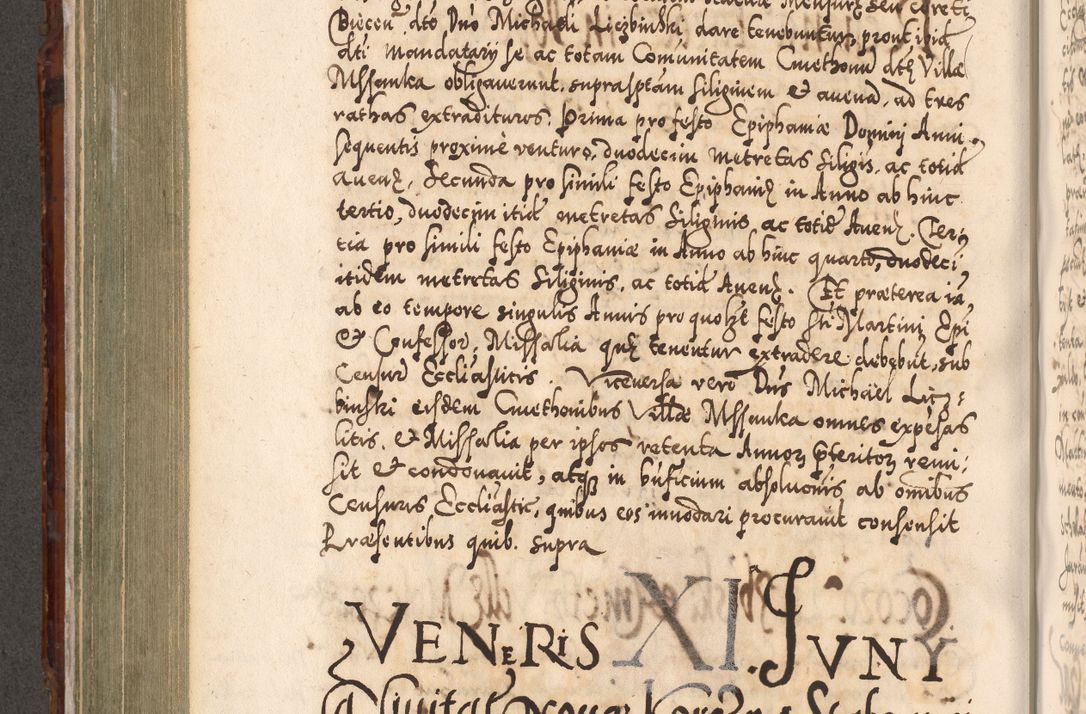 Biecen. dto Dno Michaeli Liczbinski, dare tenebuntur, prout ibid
dti mandatarij se ac totam Comunitatem Cmethonu dtę Villae
Mssanka obligaverunt. suprasptam siliginem & avenā, ad tres
rathas extradituros. Prima pro festo Epiphaniæ Dominj Anni
sequentis proximè venturo, duodecim metretas siligis, ac totid
avenę, Secunda pro simili festo Epiphanię in Anno ab hinc
tertio, duodecim itid metretas siliginis ac totid Avenę. Ter,
tia pro simili festo Epiphaniæ in Anno ab hinc quarto, duodeci,
itidem metretas siliginis, ac totid Avenę. Et præterea ia,
ab eo tempore singulis Annis pro quolzt festo Sti Martini Epi
& Confessor, Missalia quę tenentur extradere debebut, sub
Censur Eccliasticis. Viceversa vero Dns Michael Licz:
binski eisdem Cmethonibus Villæ Mssanka omnes expēsas
litis, & Missalia per ipsos retenta Annoz pteritoz remi,
sit & condonavit, atqz in bnficium absolucnis ab omibus
Censuris Eccliastic, quibus eos innodari procuravit consensit
Præsentibus quib. supra
VENERIS XI. JUNY